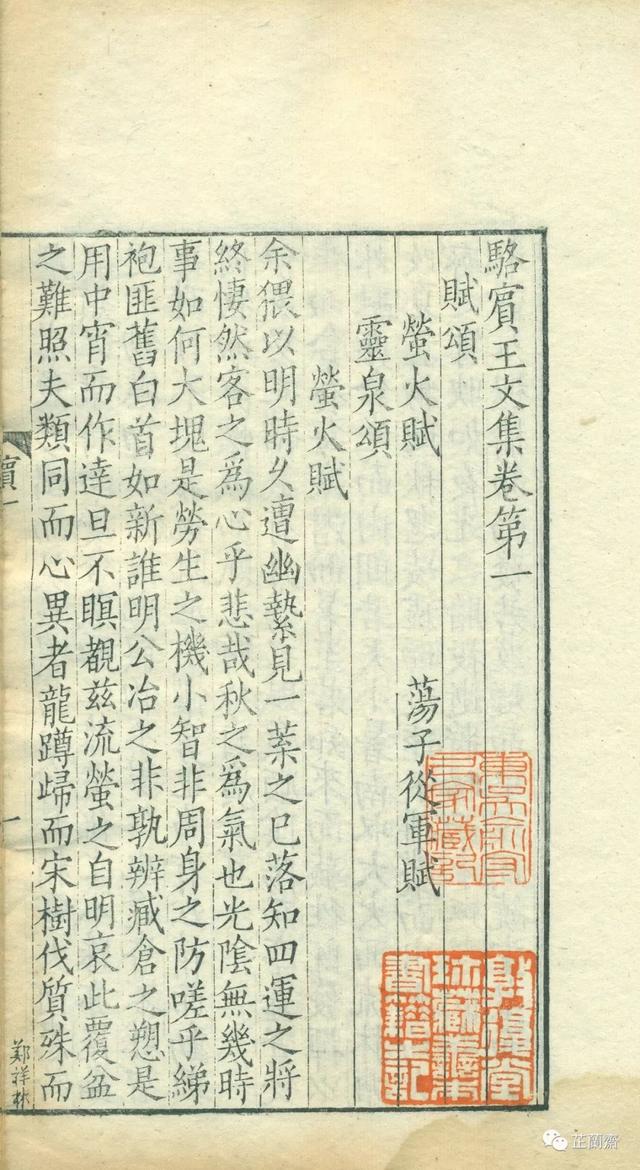 駱賓王文集卷第一
賦頌
螢火賦　蕩子從軍賦
靈泉頌
螢火賦
余猥以明時久遭幽縶見一葉之已落知四運之將
終悽然客之爲心乎悲哉秋之爲氣也光陰無幾時
事如何大塊是勞生之機小智非周身之防嗟乎綈
袍匪舊白首如新誰明公冶之非孰辨臧倉之愬是
用中宵而作達旦不瞑覩茲流螢之自明哀此覆盆
之難照夫類同而心異者龍蹲歸而宋樹伐質殊而
賓一
一
鄭祥林
敦煌堂
珍藏善本
書籍記
芷蘭齋